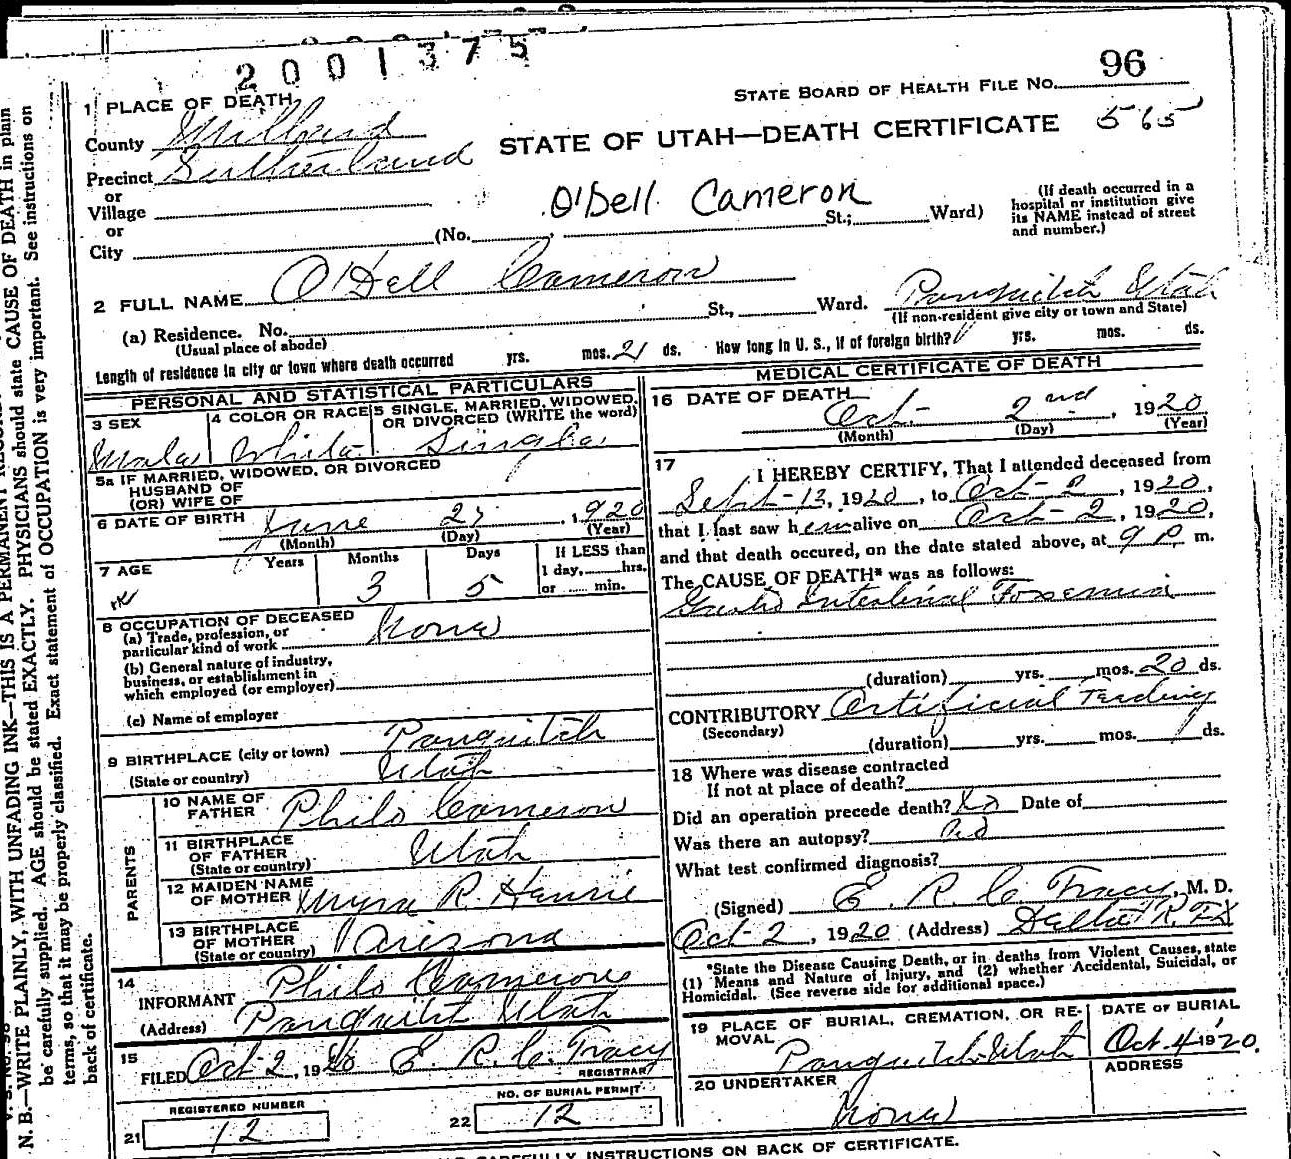 2001375
STATE BOARD OF HEALTH FILE No. 96
1 PLACE OF DEATH
County Millard
STATE OF UTAH—DEATH CERTIFICATE 565
Precinct Sutherland
or
Village
O'Dell Cameron
(If death occurred in a hospital or institution give its NAME instead of street and number.)
or
City (No. St.; Ward)
2 FULL NAME O'Dell Cameron
(a) Residence. No. St., Ward. Panguitch Utah
(Usual place of abode) (If non-resident give city or town and State)
Length of residence in city or town where death occurred yrs. mos. 21 ds. How long in U. S., if of foreign birth? yrs. mos. ds.
PERSONAL AND STATISTICAL PARTICULARS
3 SEX Male
4 COLOR OR RACE White
5 SINGLE, MARRIED, WIDOWED, OR DIVORCED (WRITE the word) Single
5a IF MARRIED, WIDOWED, OR DIVORCED
HUSBAND OF
(OR) WIFE OF
6 DATE OF BIRTH June 27, 1920
(Month) (Day) (Year)
7 AGE Years Months 3 Days 5 If LESS than 1 day, hrs. or min.
8 OCCUPATION OF DECEASED None
(a) Trade, profession, or particular kind of work
(b) General nature of industry, business, or establishment in which employed (or employer)
(c) Name of employer
9 BIRTHPLACE (city or town) Panguitch
(State or country) Utah
PARENTS
10 NAME OF FATHER Philo Cameron
11 BIRTHPLACE OF FATHER Utah
(State or country)
12 MAIDEN NAME OF MOTHER Myra R. Henrie
13 BIRTHPLACE OF MOTHER Arizona
(State or country)
14
INFORMANT Philo Cameron
(Address) Panguitch Utah
15
FILED Oct 2, 1920 E. R. C. Tracy
REGISTRAR
REGISTERED NUMBER
21 12
NO. OF BURIAL PERMIT
22 12
MEDICAL CERTIFICATE OF DEATH
16 DATE OF DEATH Oct. 2nd, 1920
(Month) (Day) (Year)
17
I HEREBY CERTIFY, That I attended deceased from
Sept-12, 1920, to Oct-2, 1920,
that I last saw him alive on Oct-2, 1920,
and that death occured, on the date stated above, at 9 P m.
The CAUSE OF DEATH* was as follows:
Gastro Intestinal Toxemia
(duration) yrs. mos. 20 ds.
CONTRIBUTORY Artificial Feeding
(Secondary)
(duration) yrs. mos. ds.
18 Where was disease contracted
If not at place of death?
Did an operation precede death? No Date of
Was there an autopsy? no
What test confirmed diagnosis?
(Signed) E. R. C. Tracy, M. D.
Oct-2, 1920 (Address) Delta
*State the Disease Causing Death, or in deaths from Violent Causes, state
(1) Means and Nature of Injury, and (2) whether Accidental, Suicidal, or
Homicidal. (See reverse side for additional space.)
19 PLACE OF BURIAL, CREMATION, OR REMOVAL
Panguitch Utah
DATE OF BURIAL
Oct. 4 1920.
20 UNDERTAKER
None
ADDRESS
CAREFULLY INSTRUCTIONS ON BACK OF CERTIFICATE.
N. B.—WRITE PLAINLY, WITH UNFADING INK—THIS IS A PERMANENT
be carefully supplied. AGE should be stated EXACTLY. PHYSICIANS should state CAUSE OF DEATH in plain
terms, so that it may be properly classified. Exact statement of OCCUPATION is very important. See instructions on
back of certificate.